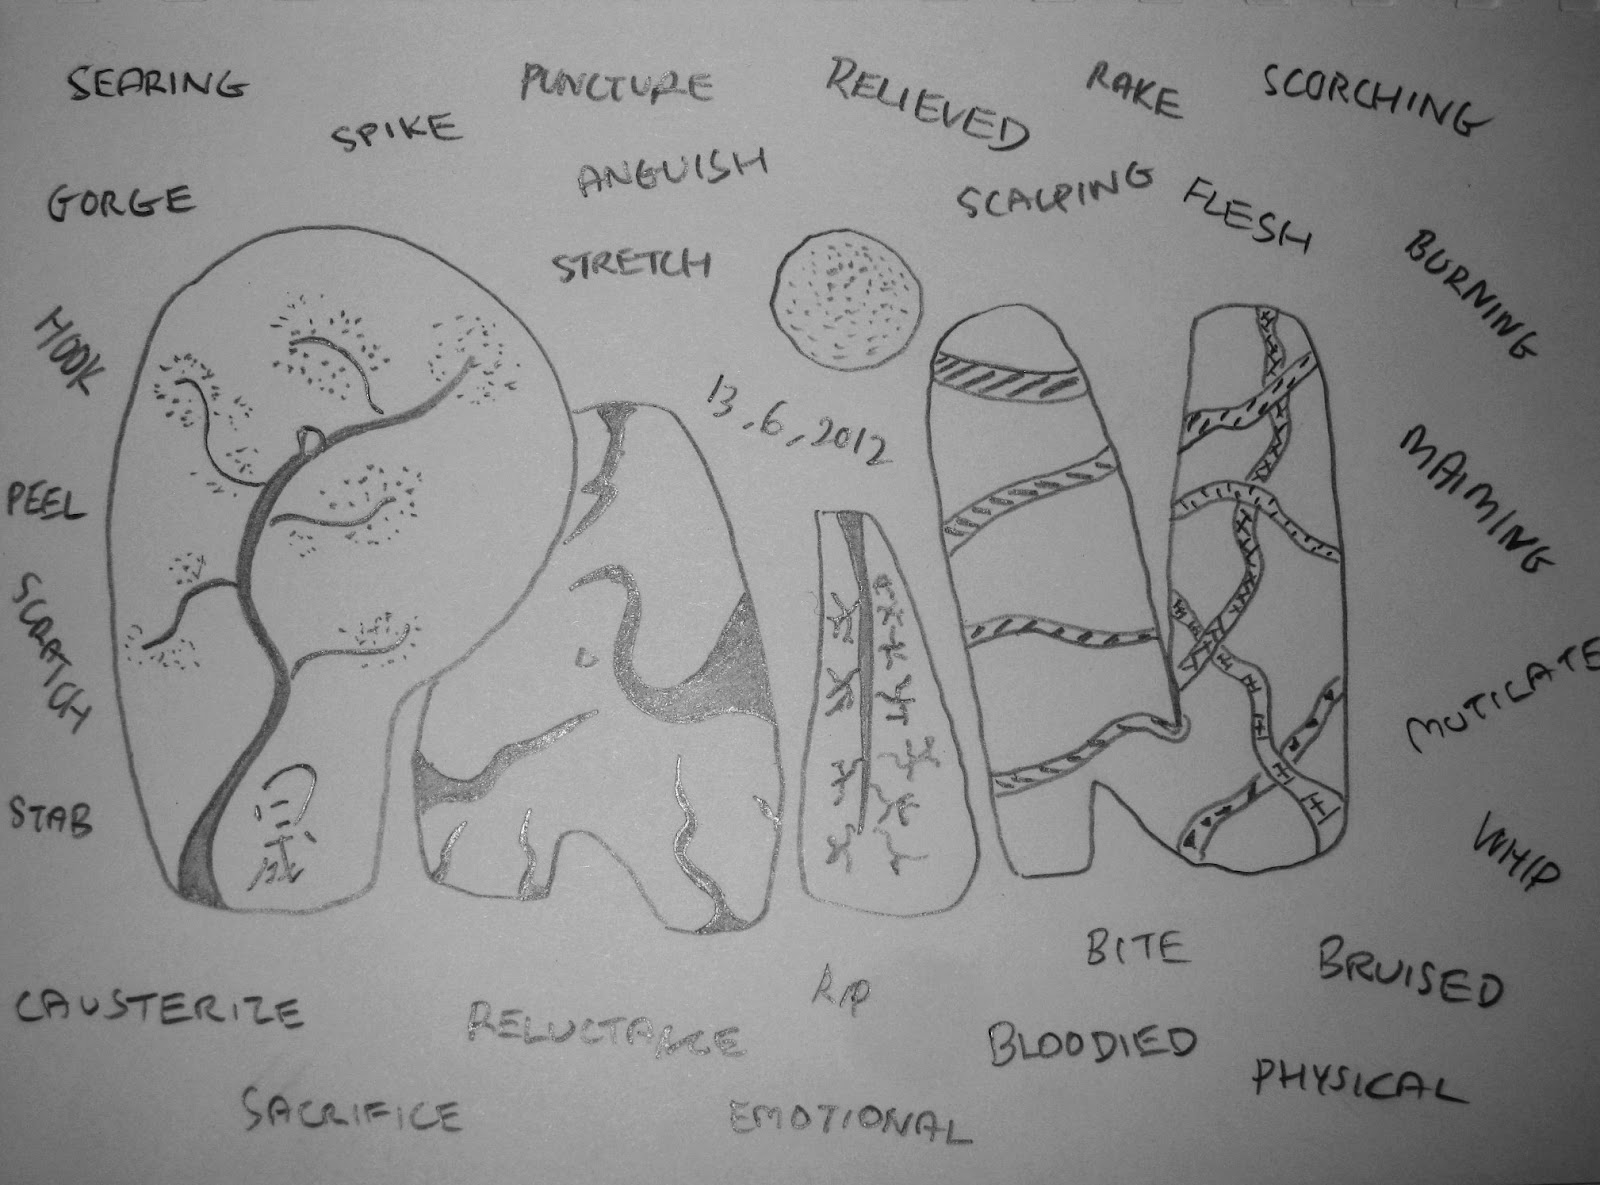 SEARING
SPIKE
PUNCTURE
RELIEVED
RAKE
SCORCHING
GORGE
ANGUISH
STRETCH
SCALPING
FLESH
BURNING
HOOK
13.6,2012
PAiN
PEEL
MAIMING
SCRATCH
MUTILATE
STAB
WHIP
CAUSTERIZE
RELUCTANCE
RIP
BITE
BRUISED
BLOODIED
PHYSICAL
SACRIFICE
EMOTIONAL